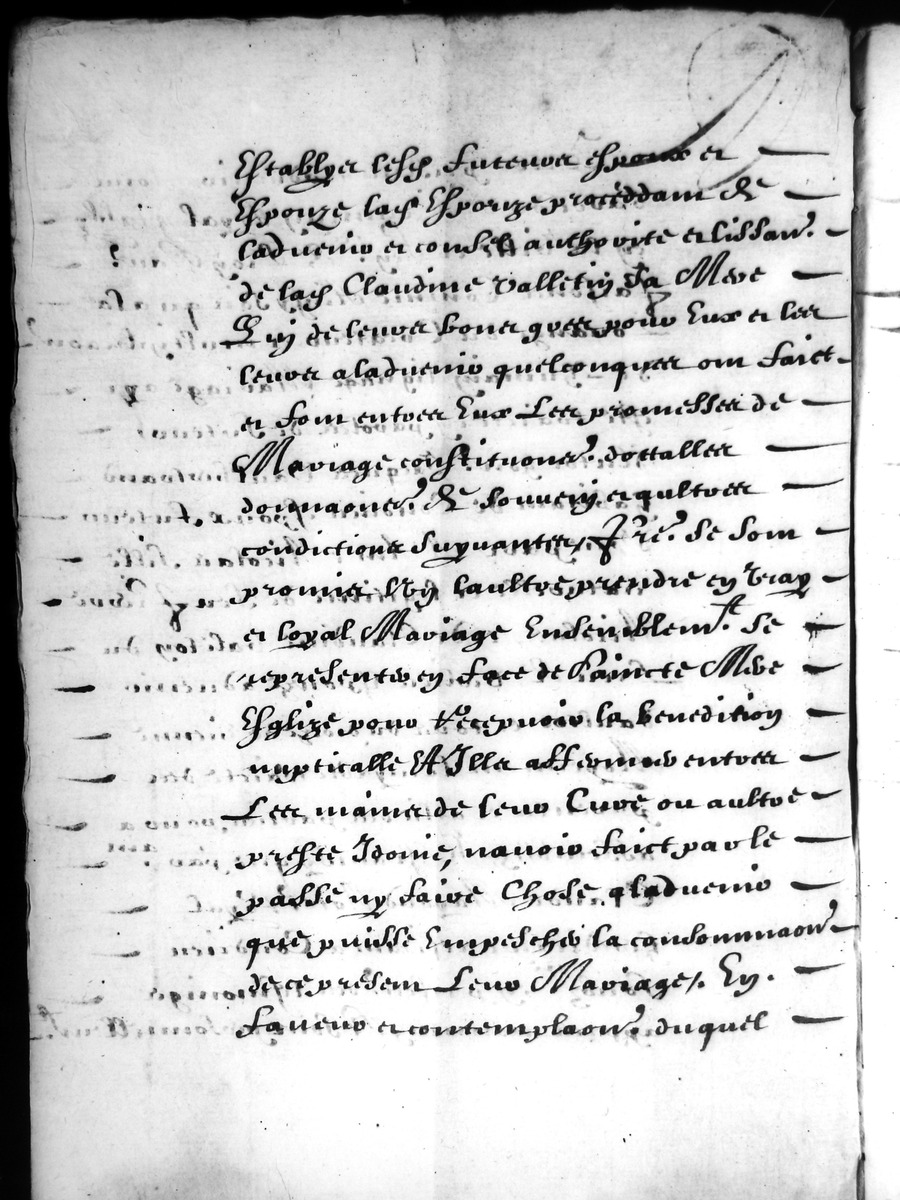 Establyes lesd. futeurs espoux et
Espouze lad. Espouze proceddant de
ladvenir et conseil authorite et lissan.
de lad. Claudine valletin sa Mere
Qui de leurs bons grees pour Eux et les
leurs aladvenir quelconques ont faict
et font entres Eux Les promesses de
Mariage constituons. dottalles
donnaons. de souveny et aultres
condictions suyvantes, se sont
promis l'un laultre prendre en vray
et loyal Mariage Ensemblemt. se
representer en face de saincte Mere
Esglize pour Recepvoir la benedition
nupticalle Et Illec affermer entres
Les mains de leur Cure ou aultre
preste Idoine, navoir faict par le
passe ny faire Chose aladvenir
que puisse Empescher la consommaon.
de ce present Leur Mariage, En.
faveur et contemplaon. duquel